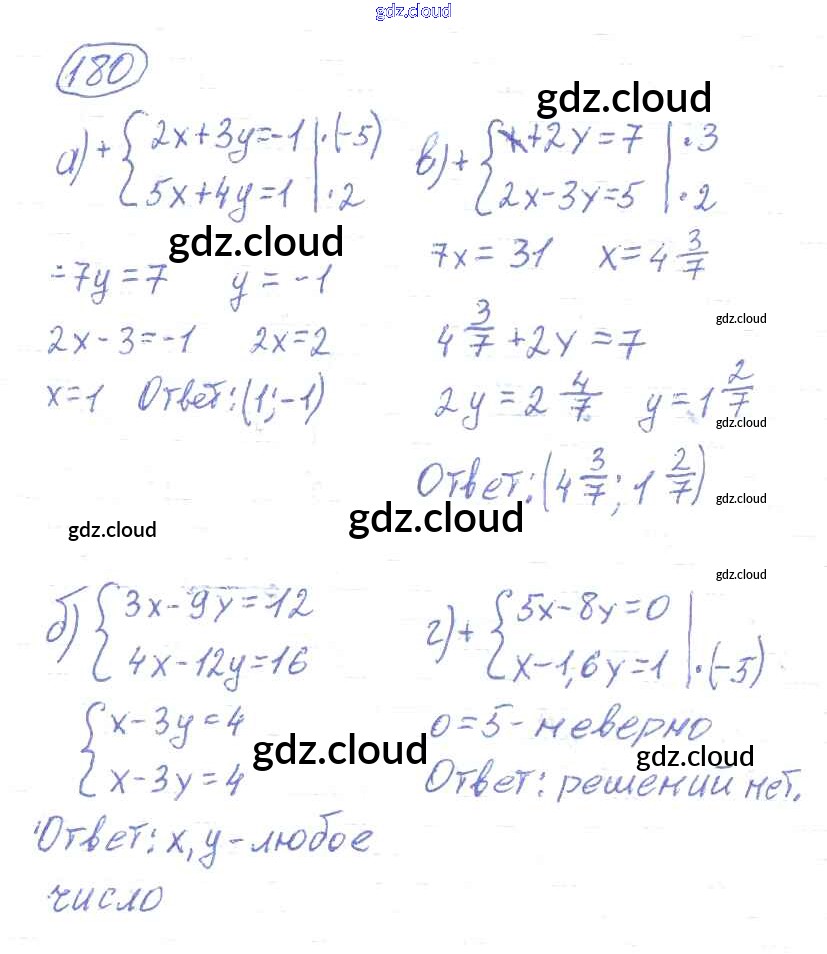 gdz.cloud
180
gdz.cloud
а) + { 2x+3y=-1 | ·(-5)
5x+4y=1 | ·2
gdz.cloud
-7y=7 y=-1
2x-3=-1 2x=2
x=1 Ответ: (1;-1)
в) + { x+2y=7 | ·3
2x-3y=5 | ·2
7x=31 x=4 3/7
gdz.cloud
4 3/7 +2y=7
2y=2 4/7 y=1 2/7
gdz.cloud
Ответ: (4 3/7; 1 2/7)
gdz.cloud
gdz.cloud
gdz.cloud
gdz.cloud
б) { 3x-9y=12
4x-12y=16
{ x-3y=4
x-3y=4
gdz.cloud
Ответ: x, y - любое
число
г) + { 5x-8y=0
x-1,6y=1 | ·(-5)
0=5 - неверно
gdz.cloud
Ответ: решений нет.